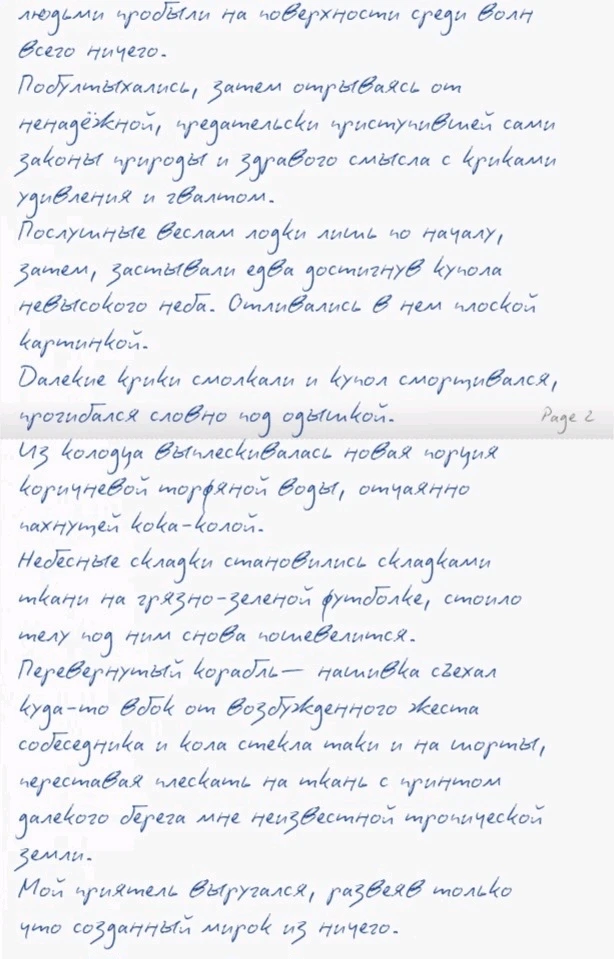 людьми пробыли на поверхности среди волн
всего ничего.
Побултыхались, затем отрываясь от
ненадёжной, предательски приступившей сами
законы природы и здравого смысла с криками
удивления и гвалтом.
Послушные веслам лодки лишь по началу,
затем, застывали едва достигнув купола
невысокого неба. Отливались в нем плоской
картинкой.
Далекие крики смолкали и купол сморщивался,
прогибался словно под одышкой.
Page 2
Из колодца выплескивалась новая порция
коричневой торфяной воды, отчаянно
пахнущей кока-колой.
Небесные складки становились складками
ткани на грязно-зеленой футболке, стоило
телу под ним снова пошевелится.
Перевернутый корабль— нашивка съехал
куда-то вбок от возбужденного жеста
собеседника и кола стекла таки и на шорты,
переставая плескать на ткань с принтом
далекого берега мне неизвестной тропической
земли.
Мой приятель выругался, развеяв только
что созданный мирок из ничего.